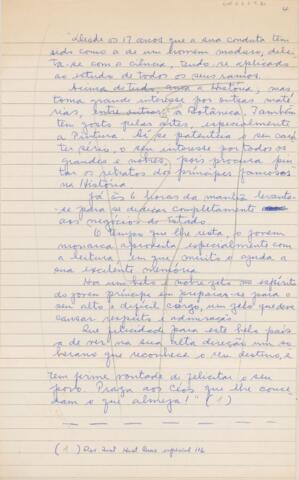 4
"Desde os 17 anos que a sua conduta têm
sido como a de um homem maduro, delei-
ta-se com a ciência, tendo-se aplicado
ao estudo de todos os seus ramos.
Acima de tudo, ama a História, mas
toma grande interesse por outras maté
rias, entre outras a Botânica. Também
tem gosto pelas artes, especialmente
a Pintura. Aí se patenteia o seu cará
ter sério, o seu interesse por todos os
grandes e nobres, pois procura pin-
tar os retratos dos príncipes famosos
na História.
Já às 6 horas da manhã levanta-
se para se dedicar completamente
aos negócios do Estado.
O tempo que lhe resta, o jovem
monarca aproveita especialmente com
a leitura em que muito o ajuda a
sua excelente memória.
Há um belo e nobre zelo no espírito
do jovem príncipe em preparar-se para o
seu alto e difícil cargo, um zelo que deve
causar respeito e admiração.
Que felicidade para este belo país
a de ver na sua alta direção um so
berano que reconhece o seu destino, e
tem firme vontade de felicitar o seu
povo. Praza aos Céos que lhe conce-
dam o que almeja!" (1)
(1) Rev. Inst. Hist. Bras. especial 116